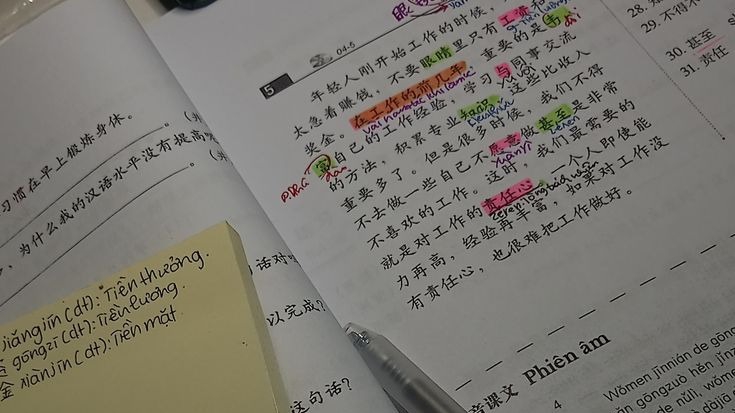 习惯在早上锻炼身体。
为什么我的汉语水平没有提高
话对
以完成？
这句话？
jiǎngjīn (dt): Tiền thưởng.
gōngzī (dt): Tiền lương.
金 xiànjīn (dt): Tiền mặt
眼
5
04-5
年轻人刚开始工作的时候，
太急着赚钱，不要眼睛里只有工资和
奖金。在工作的前几年，重要的是
自己的工作经验，学习与同事交流
的方法，积累专业知识，这些比收入
重要多了。但是很多时候，我们不得
不去做一些自己不愿意做甚至是非常
不喜欢的工作。这时，我们最需要的
就是对工作的责任心。一个人即使能
力再高，经验再丰富，如果对工作没
有责任心，也很难把工作做好。
yuànyì
28.
29. 不得不
30. 甚至
31. 责任
音课文 Phiên âm
4
Wǒmen jīnnián de gōng
gōngzuò hěn jīn